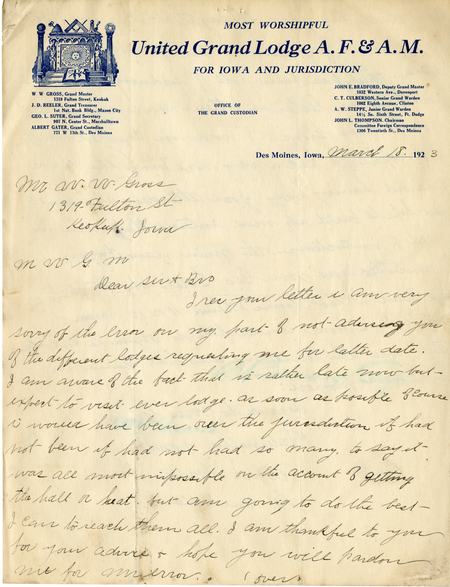 MOST WORSHIPFUL
United Grand Lodge A. F. & A. M.
FOR IOWA AND JURISDICTION
W. W. GROSS, Grand Master
1319 Fulton Street, Keokuk
J. D. REELER, Grand Treasurer
1st Nat. Bank Bldg., Mason City
GEO. L. SUTER, Grand Secretary
907 N. Center St., Marshalltown
ALBERT GATER, Grand Custodian
771 W 13th St., Des Moines
OFFICE OF
THE GRAND CUSTODIAN
JOHN E. BRADFORD, Deputy Grand Master
1032 Western Ave., Davenport
C. T. CULBERSON, Senior Grand Warden
1002 Eighth Avenue, Clinton
A. W. STEPPE, Junior Grand Warden
14½ So. Sixth Street, Ft. Dodge
JOHN L. THOMPSON, Chairman
Committee Foreign Correspondence
1306 Twentieth St., Des Moines
Des Moines, Iowa, March 18. 1923
Mr W. W Gross
1319 Fulton St
Keokuk Iowa
M W G M
Dear Sir & Bro
I rec your letter & am very
sorry of the error on my part of not advising you
of the different lodges requesting me for latter date.
I am aware of the fact that is rather late now but
expect to visit ever lodge. as soon as posible of course
i would have been over the jurisdiction if had
not been if had not had so many. to say it
was all most impossible on the account of getting
the hall or heat. but am going to do the best
I can to reach them all. I am thankful to you
for your advice & hope you will pardon
me for my error. (over)